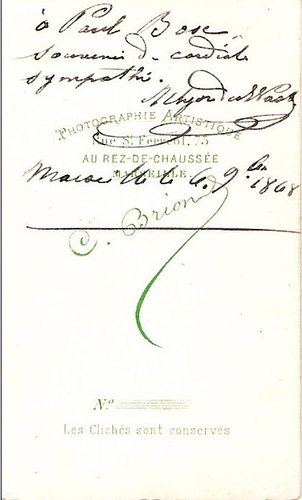 à Paul Bose
souvenir de cordiale
sympathie.
PHOTOGRAPHIE ARTISTIQUE
Rue St. Ferréol. 75
AU REZ-DE-CHAUSSÉE
MARSEILLE.
Marseille le 6. 9bre 1868
Brion
N.º
Les Clichés sont conservés